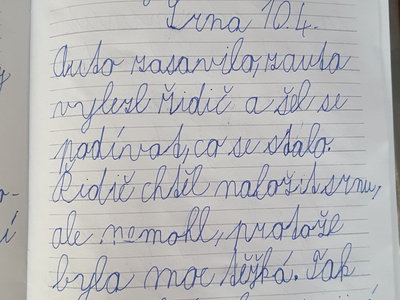 Srna 10.4.
Auto zasavilo, zauta
vylezl řidič a šel se
podívat, co se stalo.
Řidič chtěl naložit srnu,
ale nemohl, protože
byla moc těžká. Tak